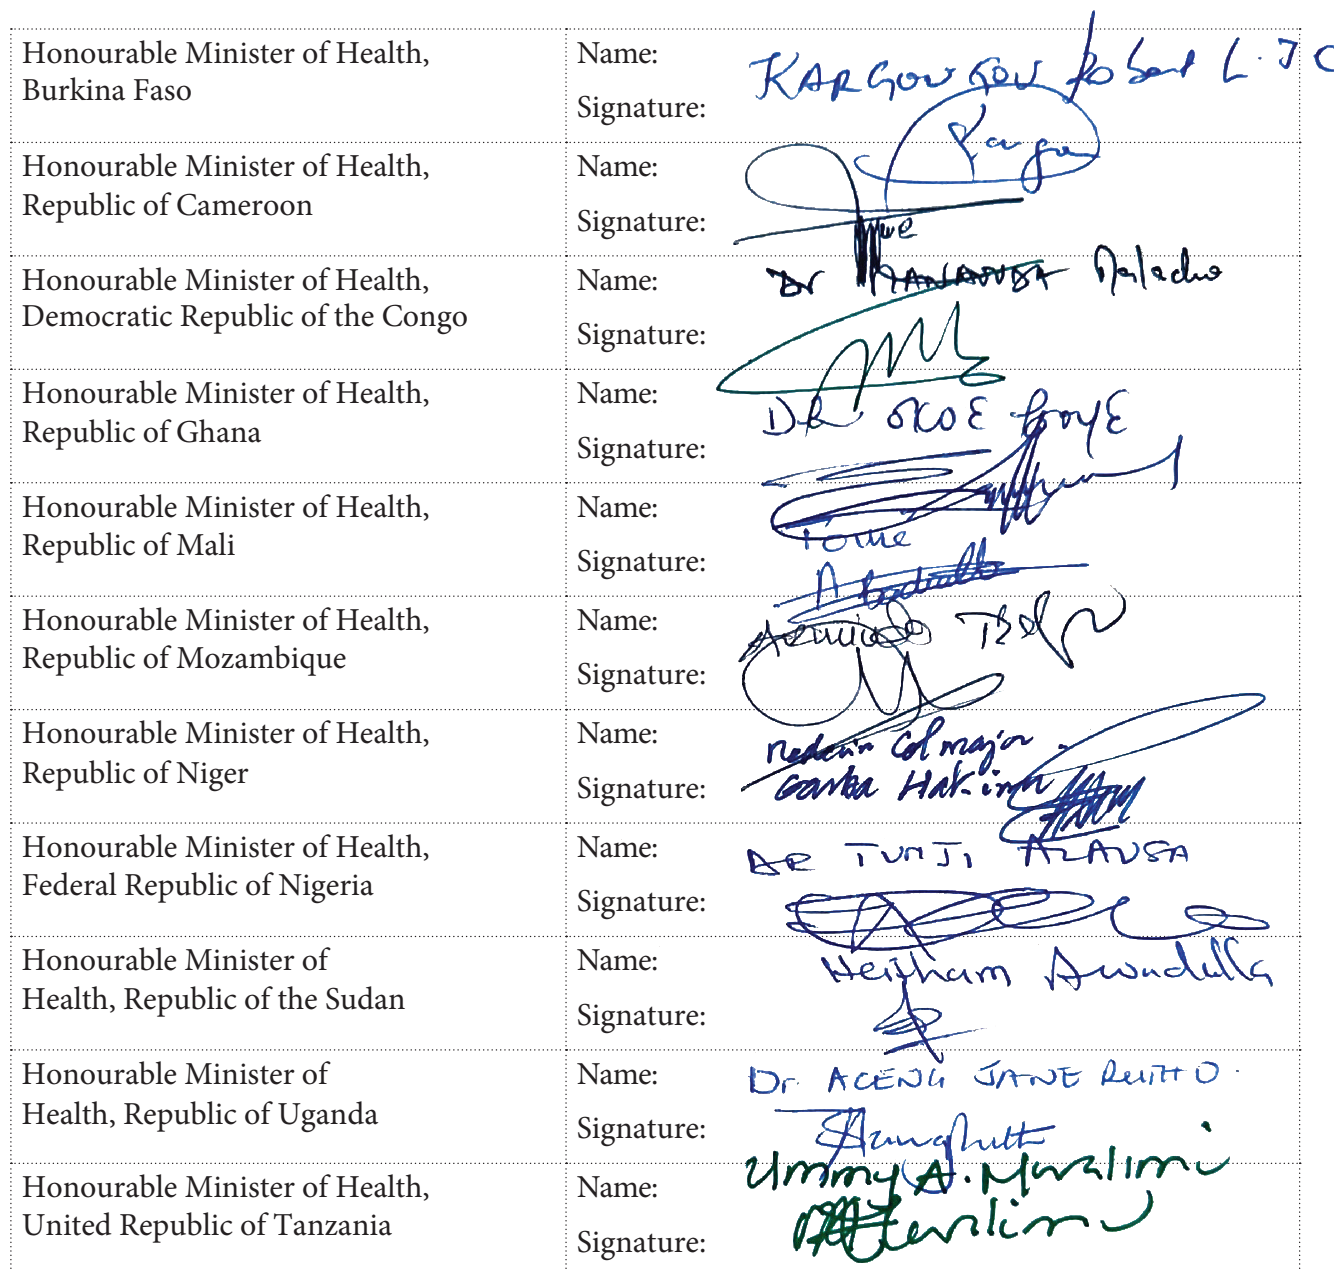 Honourable Minister of Health,
Burkina Faso
Name: KARGOUGOU Robert L. J C
Signature: Kargou
Honourable Minister of Health,
Republic of Cameroon
Name:
Signature:
Honourable Minister of Health,
Democratic Republic of the Congo
Name: Dr
Signature:
Honourable Minister of Health,
Republic of Ghana
Name: DR OKOE BOYE
Signature:
Honourable Minister of Health,
Republic of Mali
Name:
Signature:
Honourable Minister of Health,
Republic of Mozambique
Name: Armindo
Signature:
Honourable Minister of Health,
Republic of Niger
Name: Medecin Col major
Signature: Garba Hakimi
Honourable Minister of Health,
Federal Republic of Nigeria
Name: DR TUNJI ALAUSA
Signature:
Honourable Minister of
Health, Republic of the Sudan
Name: Heitham Awadalla
Signature:
Honourable Minister of
Health, Republic of Uganda
Name: Dr. ACENG JANE RUTH O.
Signature:
Honourable Minister of Health,
United Republic of Tanzania
Name: Ummy A. Mwalimu
Signature: